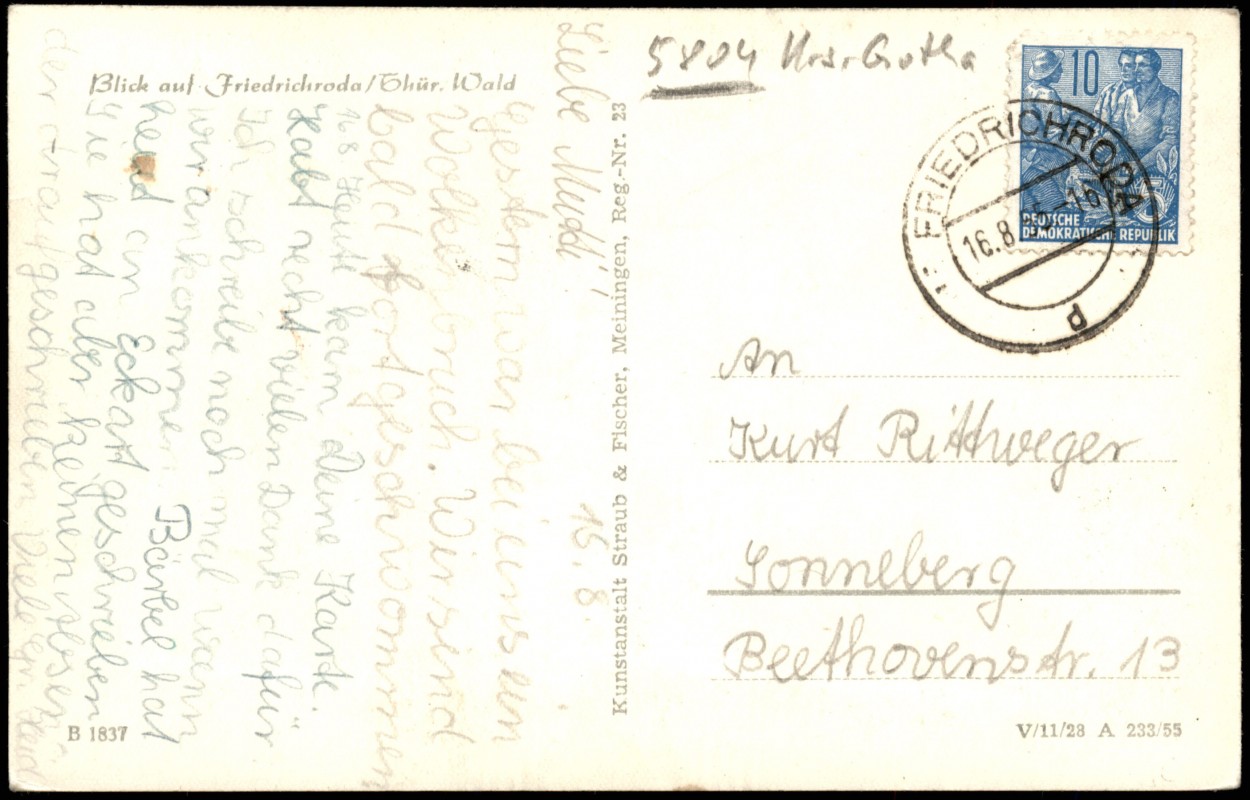 Blick auf Friedrichroda/Thür. Wald
16.8.
Liebe Mudi!
Gestern war bei uns ein
Wolkenbruch. Wir sind
bald fortgeschwommen
16.8 Heute kam deine Karte.
Habt recht vielen Dank dafür
Ich schreibe noch mal wann
wir ankommen. Bärbel hat
heut an Eckart geschrieben
Sie hat aber keinen Absen
der drauf geschrieben Viele Gr.
B 1837
Kunstanstalt Straub & Fischer, Meiningen, Reg.-Nr. 23
5804 Krs. Gotha
10
DEUTSCHE
DEMOKRATISCHE REPUBLIK
FRIEDRICHRODA
16.8
16
d
An
Kurt Rittweger
Sonneberg
Beethovenstr. 13
V/11/28 A 233/55